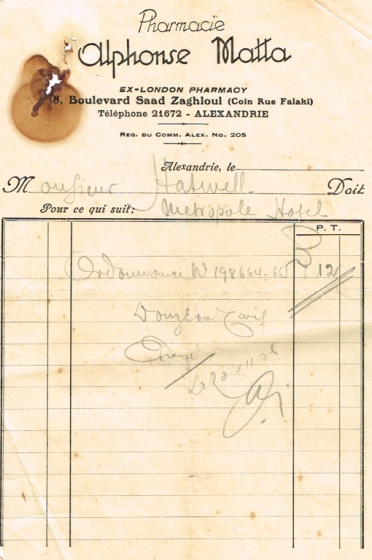 Pharmacie
Alphonse Matta
EX-LONDON PHARMACY
8, Boulevard Saad Zaghloul (Coin Rue Falaki)
Téléphone 21672 - ALEXANDRIE
REG. DU COMM. ALEX. No. 205
Alexandrie, le
Monsieur Hatwell. Doit
Pour ce qui suit: Metropole Hotel
P. T.
Ordonnance No 198664-65 12